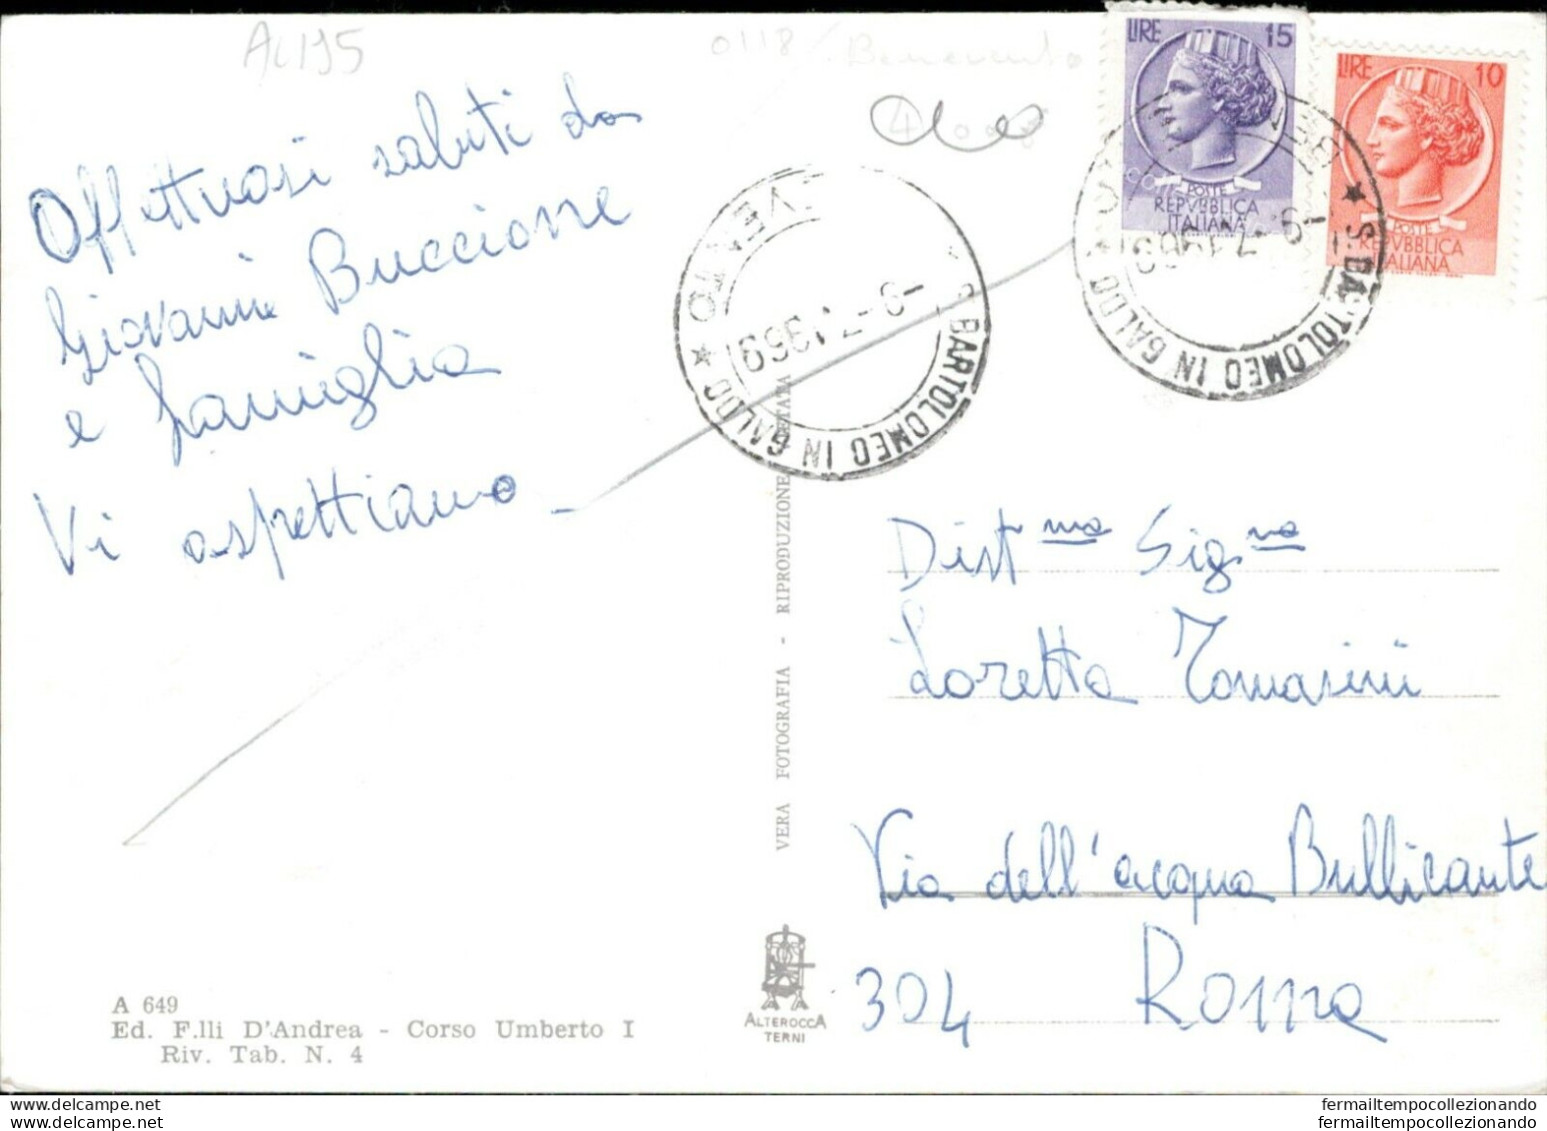 AL195
0118 Benevento
Affettuosi saluti da
Giovanni Buccione
e famiglia
Vi aspettiamo
LIRE 15
POSTE
REPVBBLICA
ITALIANA
LIRE 10
POSTE
REPVBBLICA
ITALIANA
S. BARTOLOMEO IN GALDO ★
-9-7.1969
BARTOLOMEO IN GALDO ★
-9-7.1969
Distma Signa
Loretta Tomasini
Via dell'acqua Bullicante
304 Roma
VERA FOTOGRAFIA - RIPRODUZIONE VIETATA
ALTEROCCA
TERNI
A 649
Ed. F.lli D'Andrea - Corso Umberto I
Riv. Tab. N. 4
fermailtempocollezionando
fermailtempocollezionando.delcampe.net
fermailtempocollezionando
fermailtempocollezionando.delcampe.net